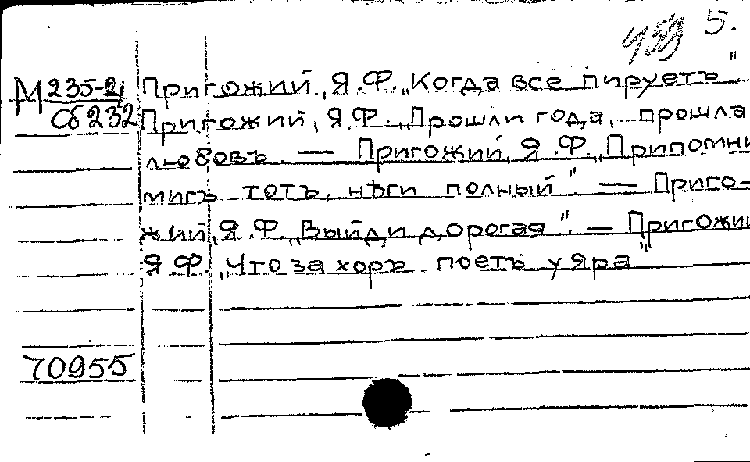 5.
М 235-2/Сб 232
Пригожий, Я.Ф. „Когда все пируетъ"
Пригожий, Я.Ф. „Прошли года, прошла
любовь. — Пригожий, Я.Ф. „Припомни
мигъ тотъ, нѣги полный". — Приго-
жий, Я.Ф. „Выйди дорогая". — Пригожий
Я.Ф. „Что за хоръ поетъ у яра"
70955